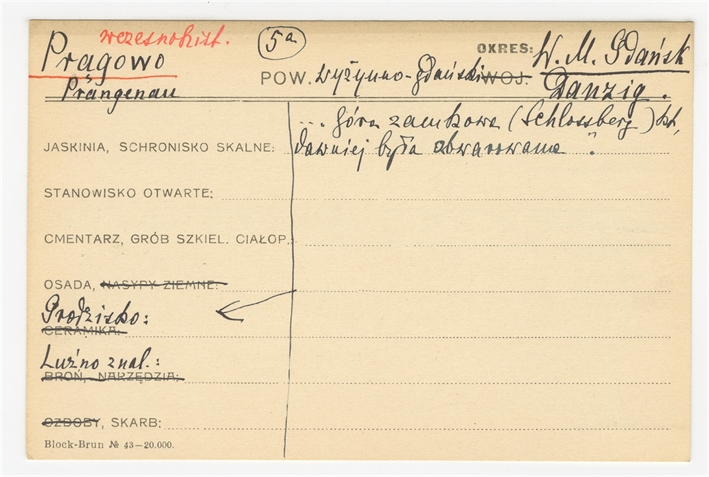 wczesnohist.
Pragowo
Prangenau
5a
OKRES: W. M. Gdańsk
POW. wyżynno-gdański WOJ. Danzig.
"... góra zamkowa (Schlossberg) kt.
JASKINIA, SCHRONISKO SKALNE: dawniej była obwarowana".
STANOWISKO OTWARTE:
CMENTARZ, GRÓB SZKIEL. CIAŁOP.:
OSADA, NASYPY ZIEMNE:
Grodzisko:
CERAMIKA:
Luźno znal.:
BROŃ, NARZĘDZIA:
OZDOBY, SKARB:
Block-Brun № 43—20.000.